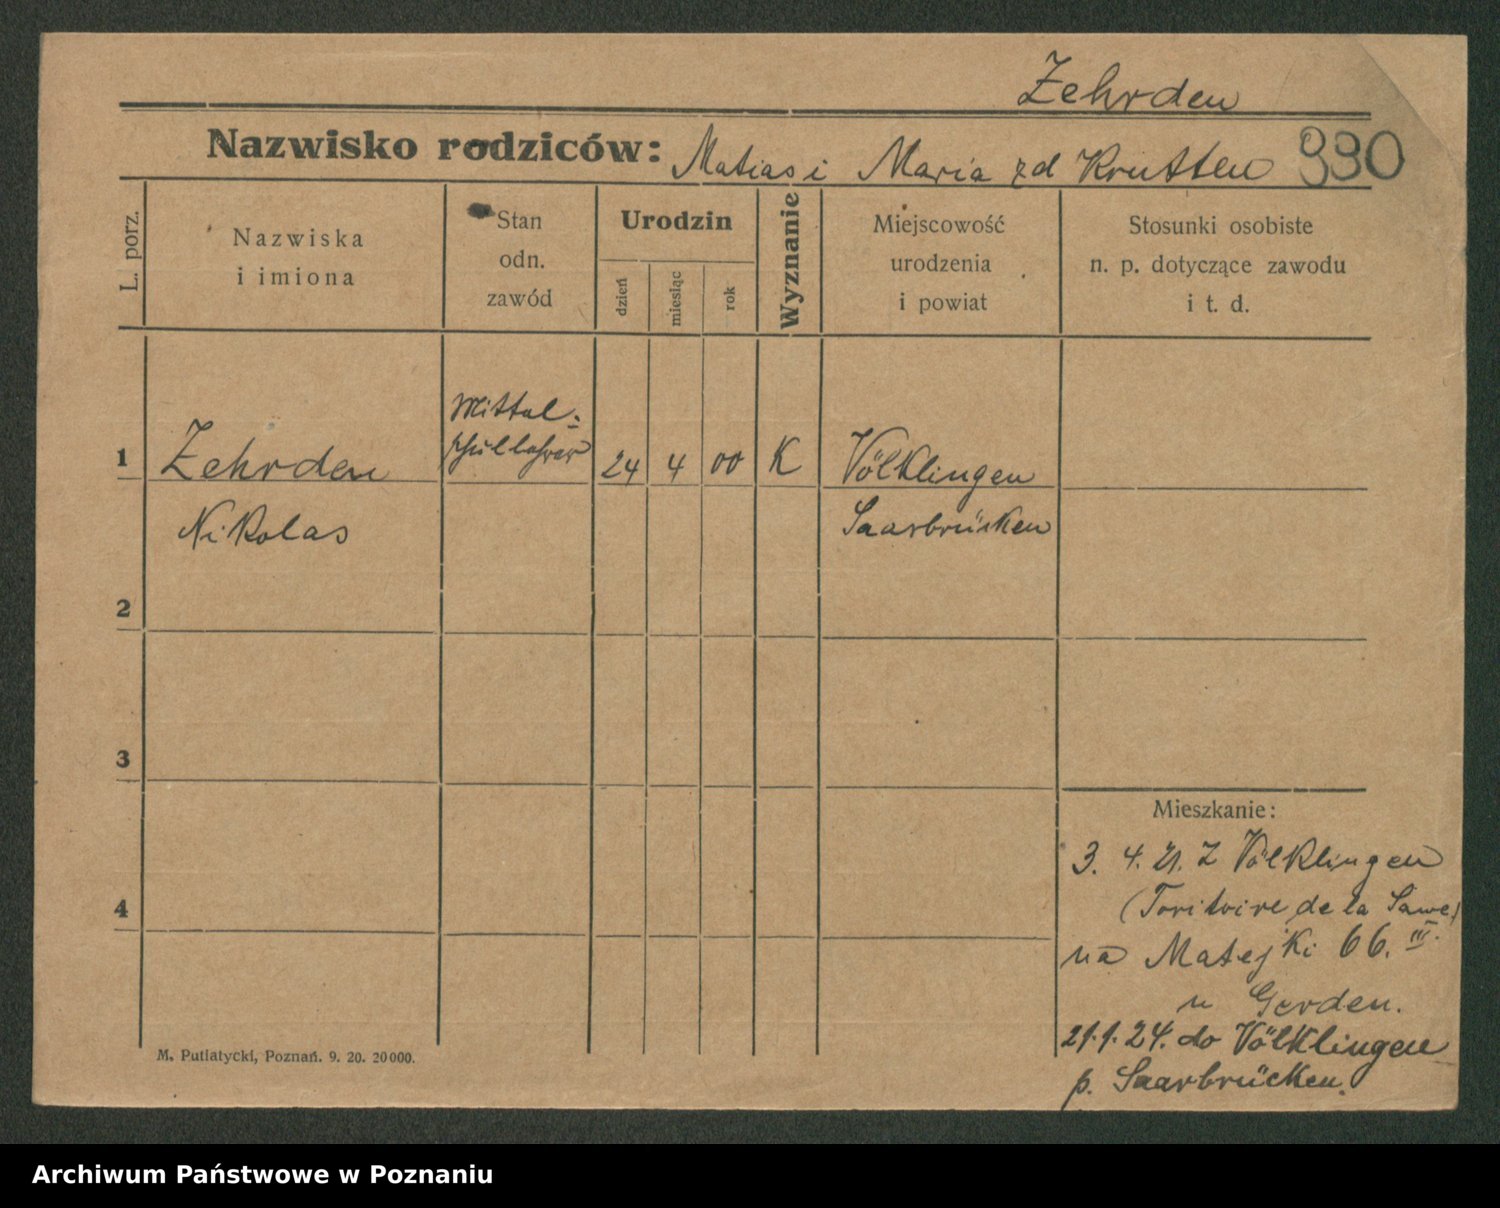 Zehrden
Nazwisko rodziców: Matias i Maria zd Krutten 990
L. porz.
Nazwiska
i imiona
Stan
odn.
zawód
Urodzin
dzień
miesiąc
rok
Wyznanie
Miejscowość
urodzenia
i powiat
Stosunki osobiste
n. p. dotyczące zawodu
i t. d.
Mittel-
schullehrer
1 Zehrden 24 4 00 K Völklingen
Nikolas Saarbrücken
2
3
Mieszkanie:
3. 4. 21. z Völklingen
4 (Toritoire de la Sarre)
na Matejki 66. III.
u Gerden.
21.1.24. do Völklingen
p. Saarbrücken.
M. Putiatycki, Poznań. 9. 20. 20000.
Archiwum Państwowe w Poznaniu